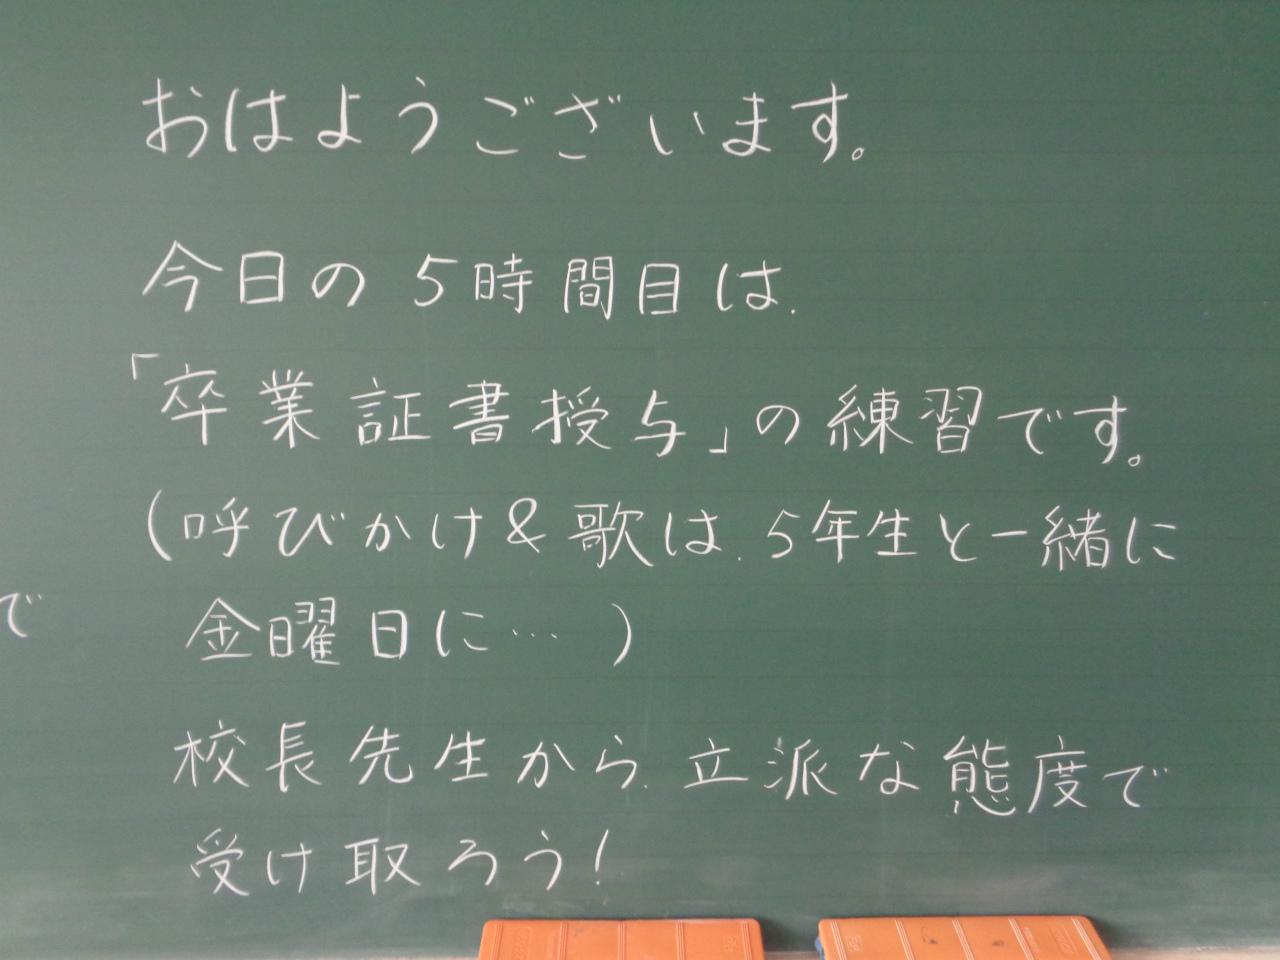 おはようございます。
今日の5時間目は、
「卒業証書授与」の練習です。
(呼びかけ&歌は、5年生と一緒に
金曜日に…)
校長先生から、立派な態度で
受け取ろう!
で